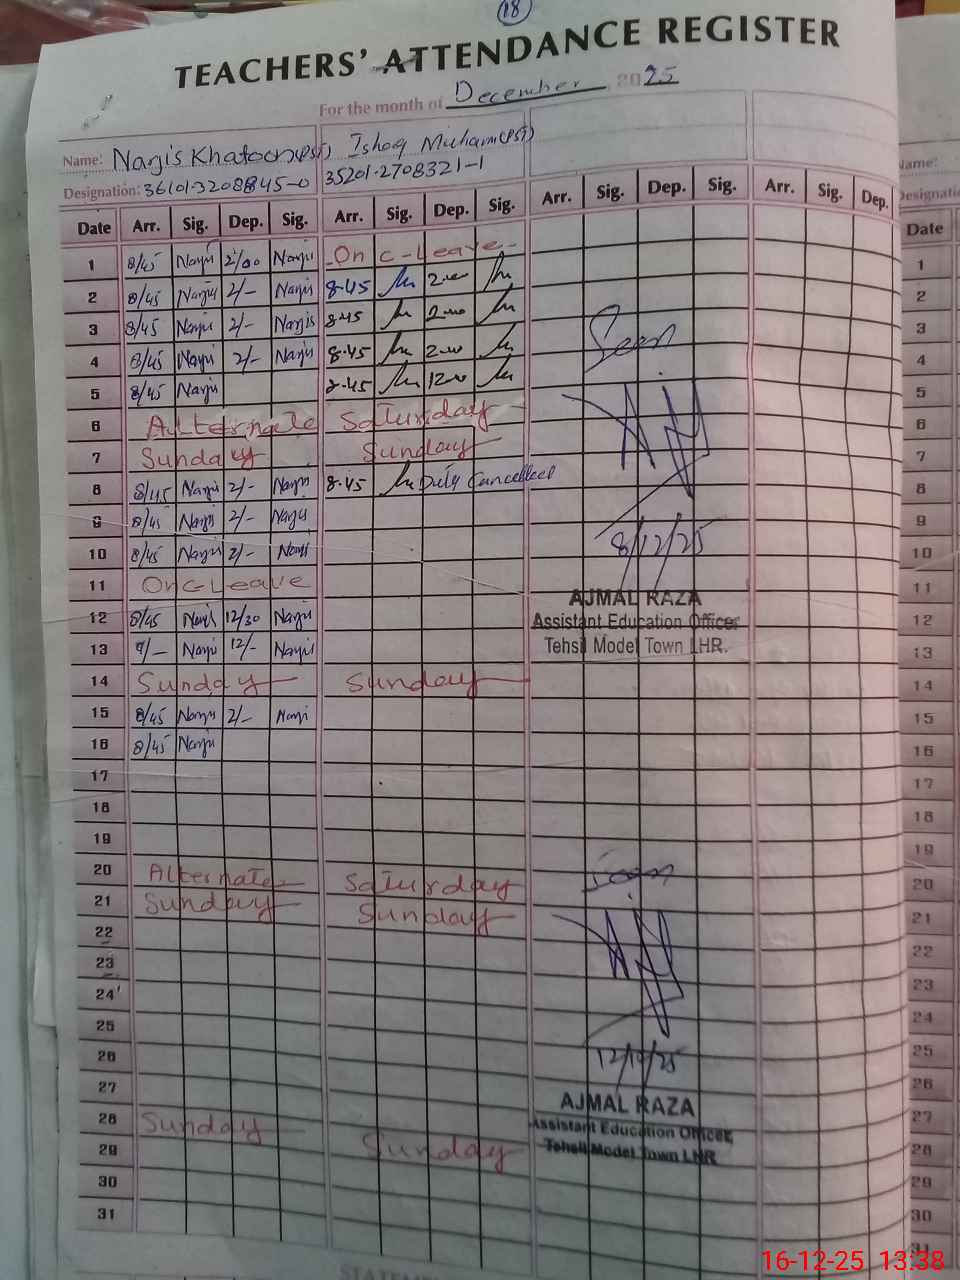 18
TEACHERS' ATTENDANCE REGISTER
For the month of December, 2025
Name: Narjis Khatoon (PST) Ishaq Muham (PST)
Designation: 35201-2708321-1
Date Arr. Sig. Dep. Sig. Arr. Sig. Dep. Sig. Arr. Sig. Dep. Sig. Arr. Sig. Dep.
1 8/45 Narjis 2/00 Narjis On C-Leave
2 8/45 Narjis 2/- Narjis 8-45 2-00
3 8/45 Narjis 2/- Narjis 8-45 2-00
4 8/45 Narjis 2/- Narjis 8-45 2-00
5 8/45 Narjis 8-45 12-00
6 Alternate Saturday
7 Sunday Sunday
8 8/45 Narjis 2/- Narjis 8-45 Duty Cancelled
9 8/45 Narjis 2/- Narjis
10 8/45 Narjis 2/- Narjis
11 On C-Leave
12 8/45 Narjis 12/30 Narjis
13 9/- Narjis 12/- Narjis
14 Sunday Sunday
15 8/45 Narjis 2/- Narjis
16 8/45 Narjis
17
18
19
20 Alternate Saturday
21 Sunday Sunday
22
23
24
25
26
27
28 Sunday
29 Sunday
30
31
Seen
8/12/25
AJMAL RAZA
Assistant Education Officer
Tehsil Model Town LHR.
Seen
AJMAL RAZA
Assistant Education Officer
Tehsil Model Town LHR
Name:
Date
1
2
3
4
5
6
7
8
9
10
11
12
13
14
15
16
17
18
19
20
21
22
23
24
25
26
27
28
29
30
31
16-12-25 13:38